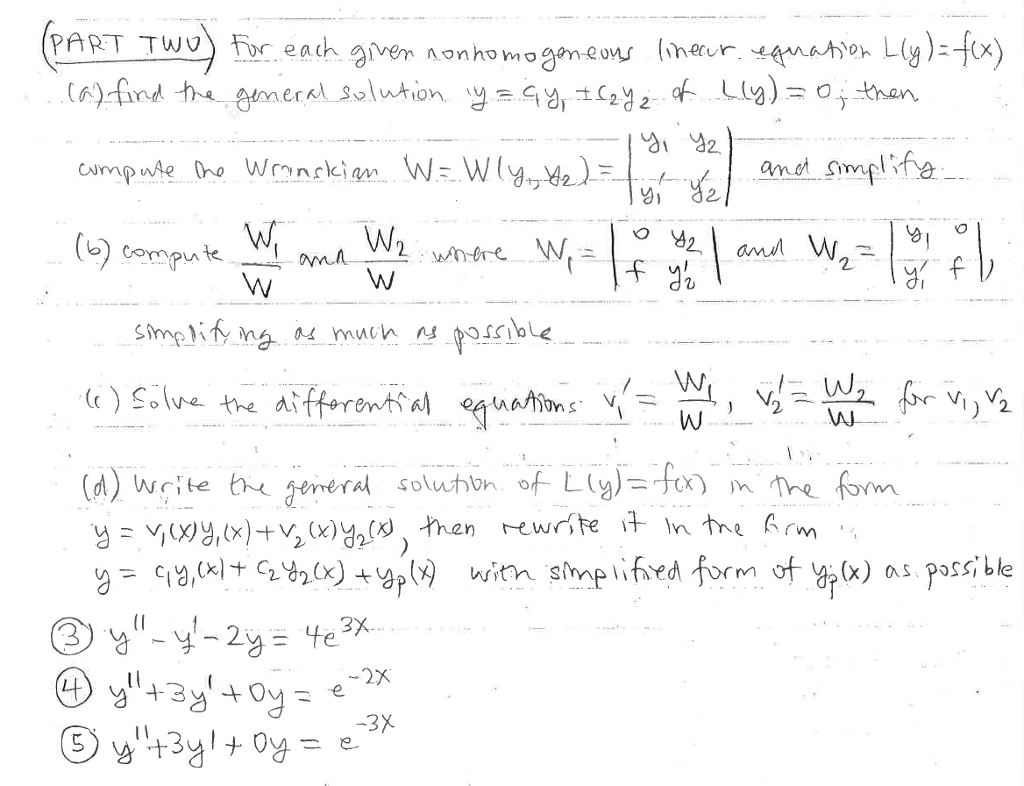 (PART TWO) For each given nonhomogeneous linear equation L(y)=f(x)
(a) find the general solution y = c₁y₁ + c₂y₂ of L(y) = 0; then
compute the Wronskian W = W(y₁, y₂) = | y₁ y₂ ; y₁' y₂' | and simplify.
(b) compute W₁/W and W₂/W where W₁ = | 0 y₂ ; f y₂' | and W₂ = | y₁ 0 ; y₁' f |,
simplifying as much as possible
(c) Solve the differential equations v₁' = W₁/W, v₂' = W₂/W for v₁, v₂
(d) Write the general solution of L(y) = f(x) in the form
y = v₁(x)y₁(x) + v₂(x)y₂(x), then rewrite it in the form
y = c₁y₁(x) + c₂y₂(x) + yₚ(x) with simplified form of yₚ(x) as possible
③ y'' - y' - 2y = 4e^{3x}
④ y'' + 3y' + 0y = e^{-2x}
⑤ y'' + 3y' + 0y = e^{-3x}